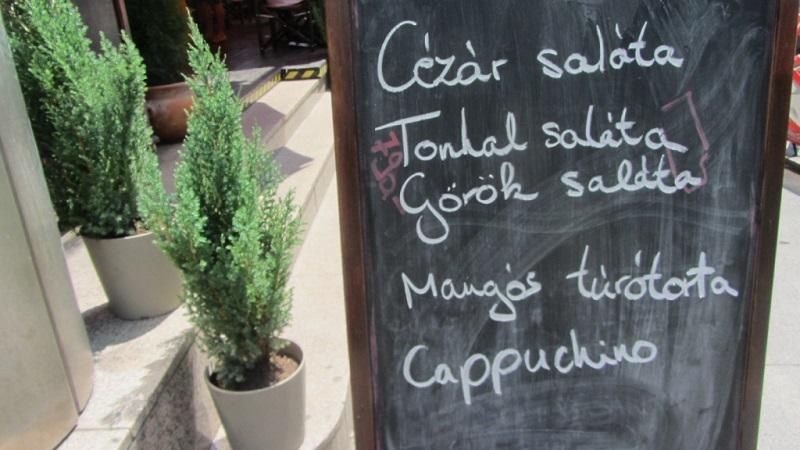 Cézàr saláta
Tonhal saláta
Görök saláta
Mangós túrótorta
Cappuchino